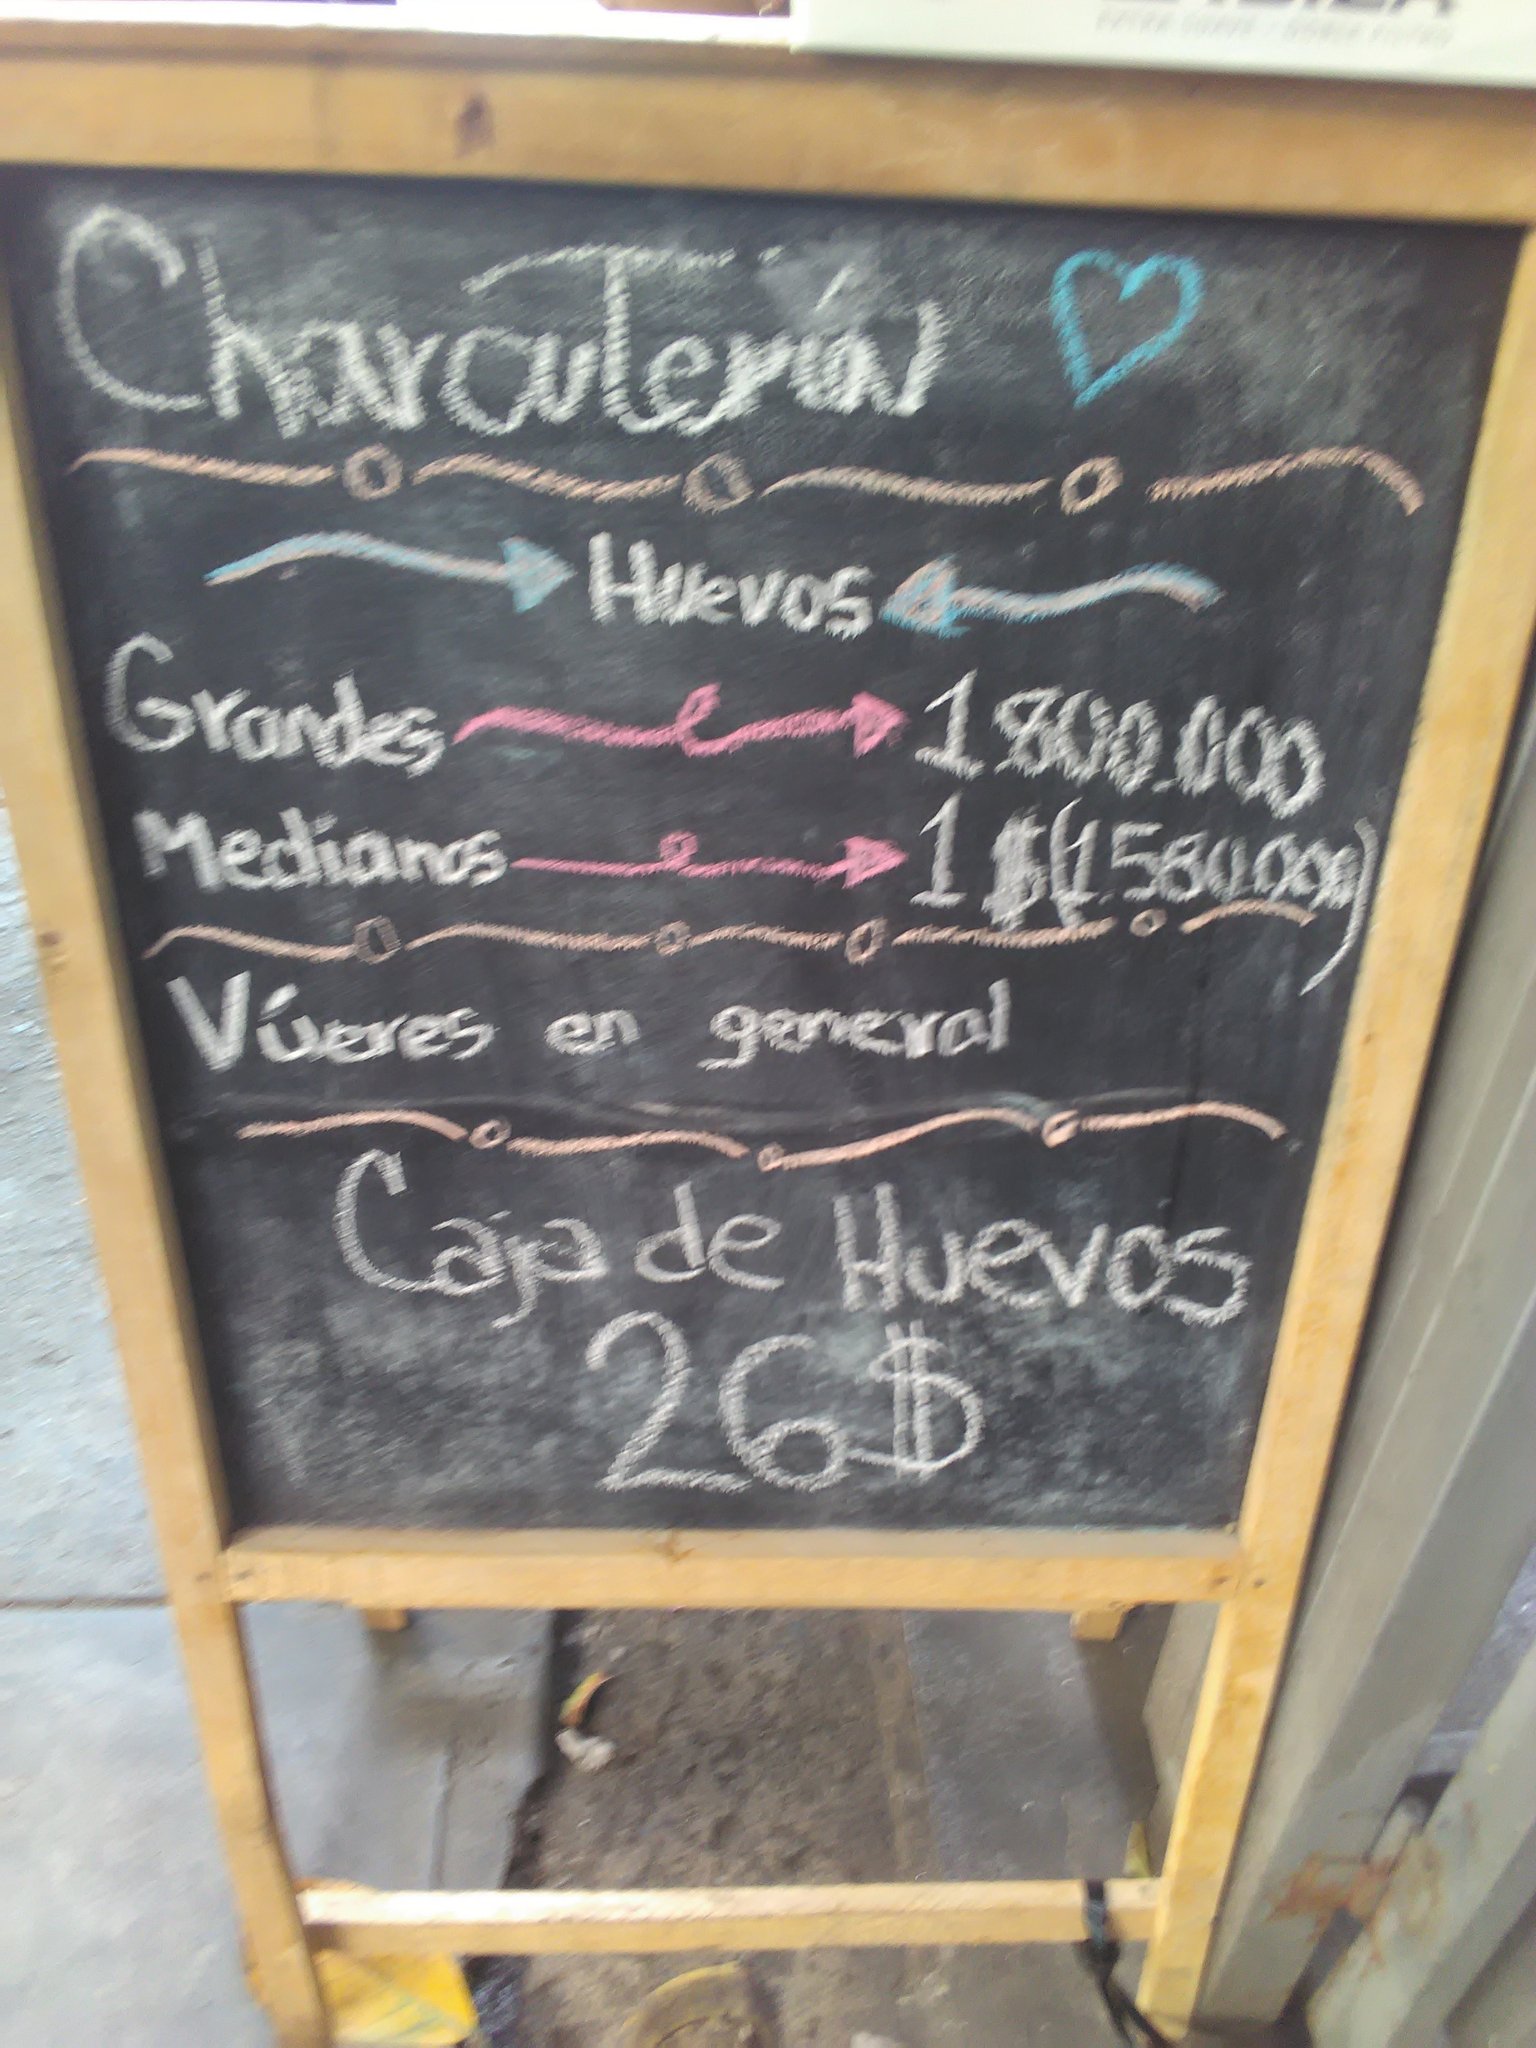 Charcutería
Huevos
Grandes 1.800.000
Medianos 1$(1.580.000)
Víveres en general
Caja de Huevos
26$